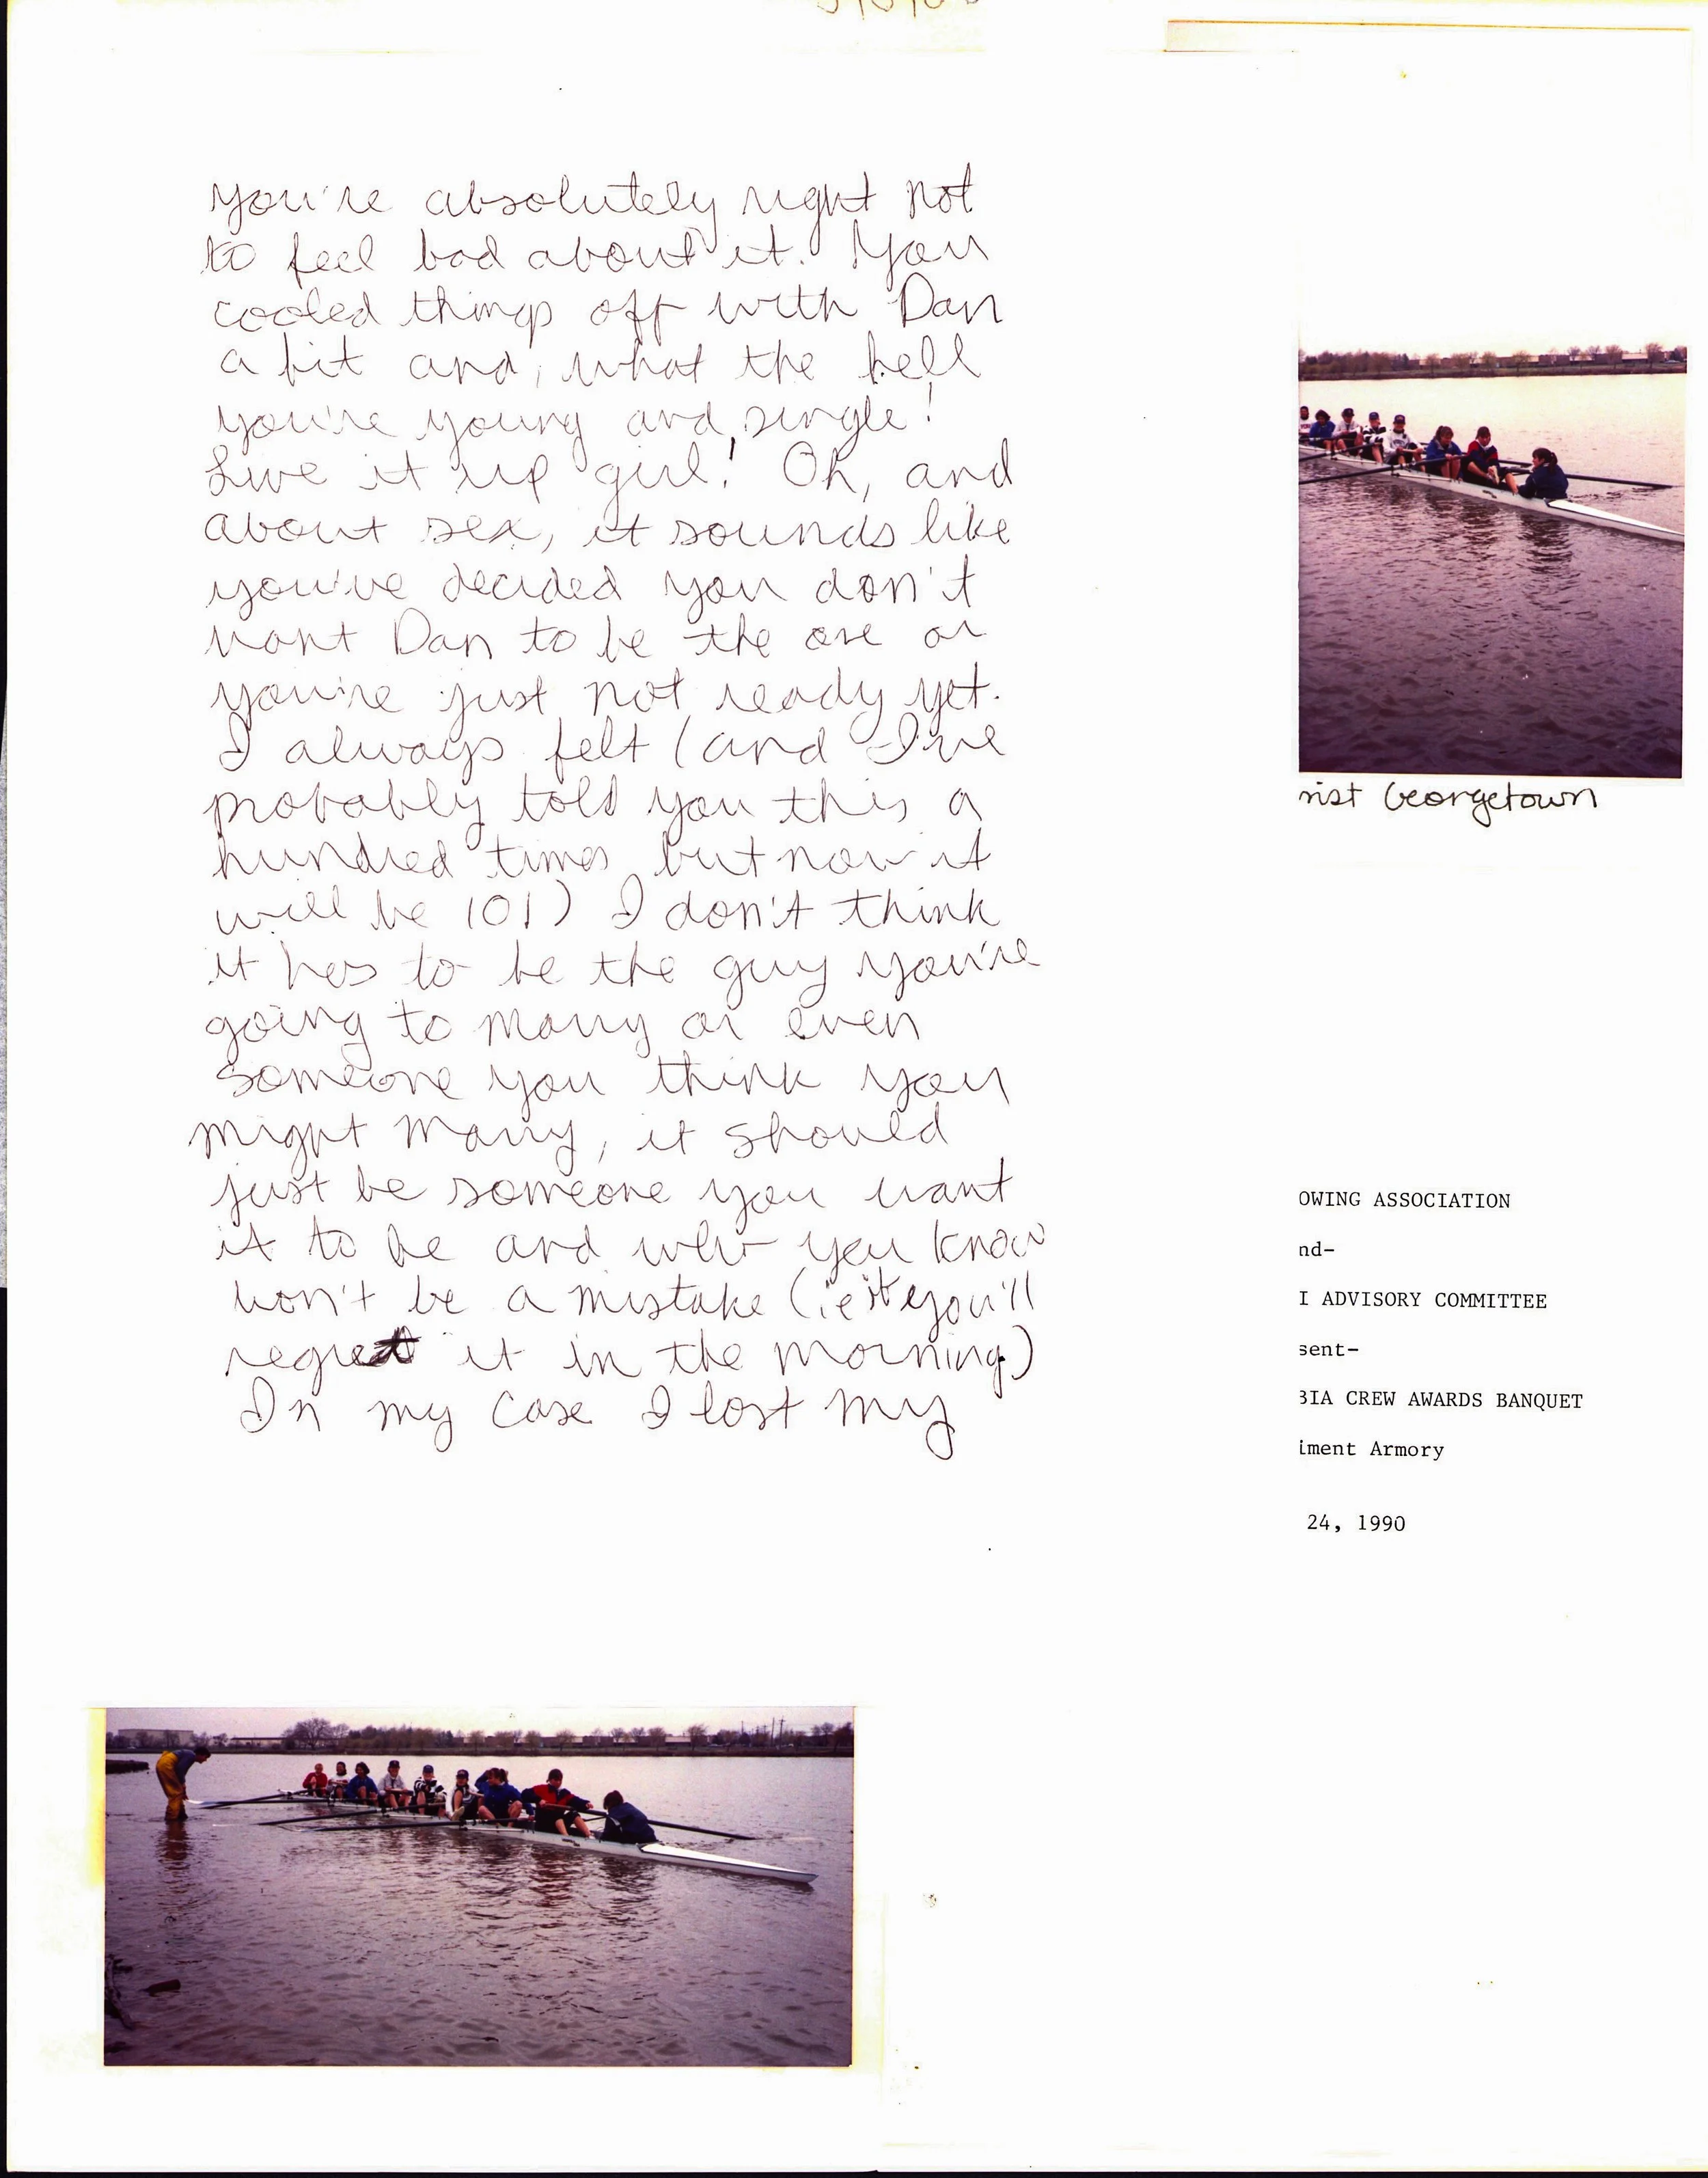 you're absolutely right not
to feel bad about it. You
cooled things off with Dan
a bit and, what the hell
you're young and single!
Live it up girl! Oh, and
about sex, it sounds like
you've decided you don't
want Dan to be the one or
you're just not ready yet.
I always felt (and I've
probably told you this a
hundred times but now it
will be 101) I don't think
it has to be the guy you're
going to marry or even
someone you think you
might marry, it should
just be someone you want
it to be and who you know
won't be a mistake (ie you'll
regret it in the morning)
In my case I lost my
Georgetown
OWING ASSOCIATION
nd-
I ADVISORY COMMITTEE
sent-
BIA CREW AWARDS BANQUET
iment Armory
24, 1990